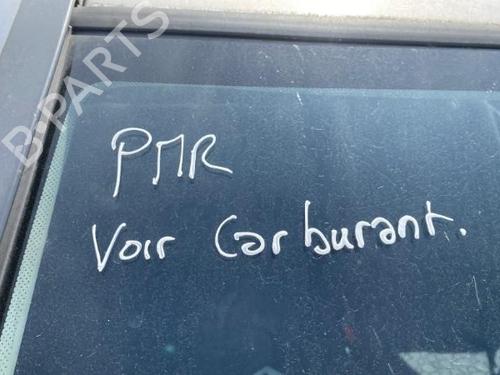 B-PARTS
PMR
Voir Carburant.